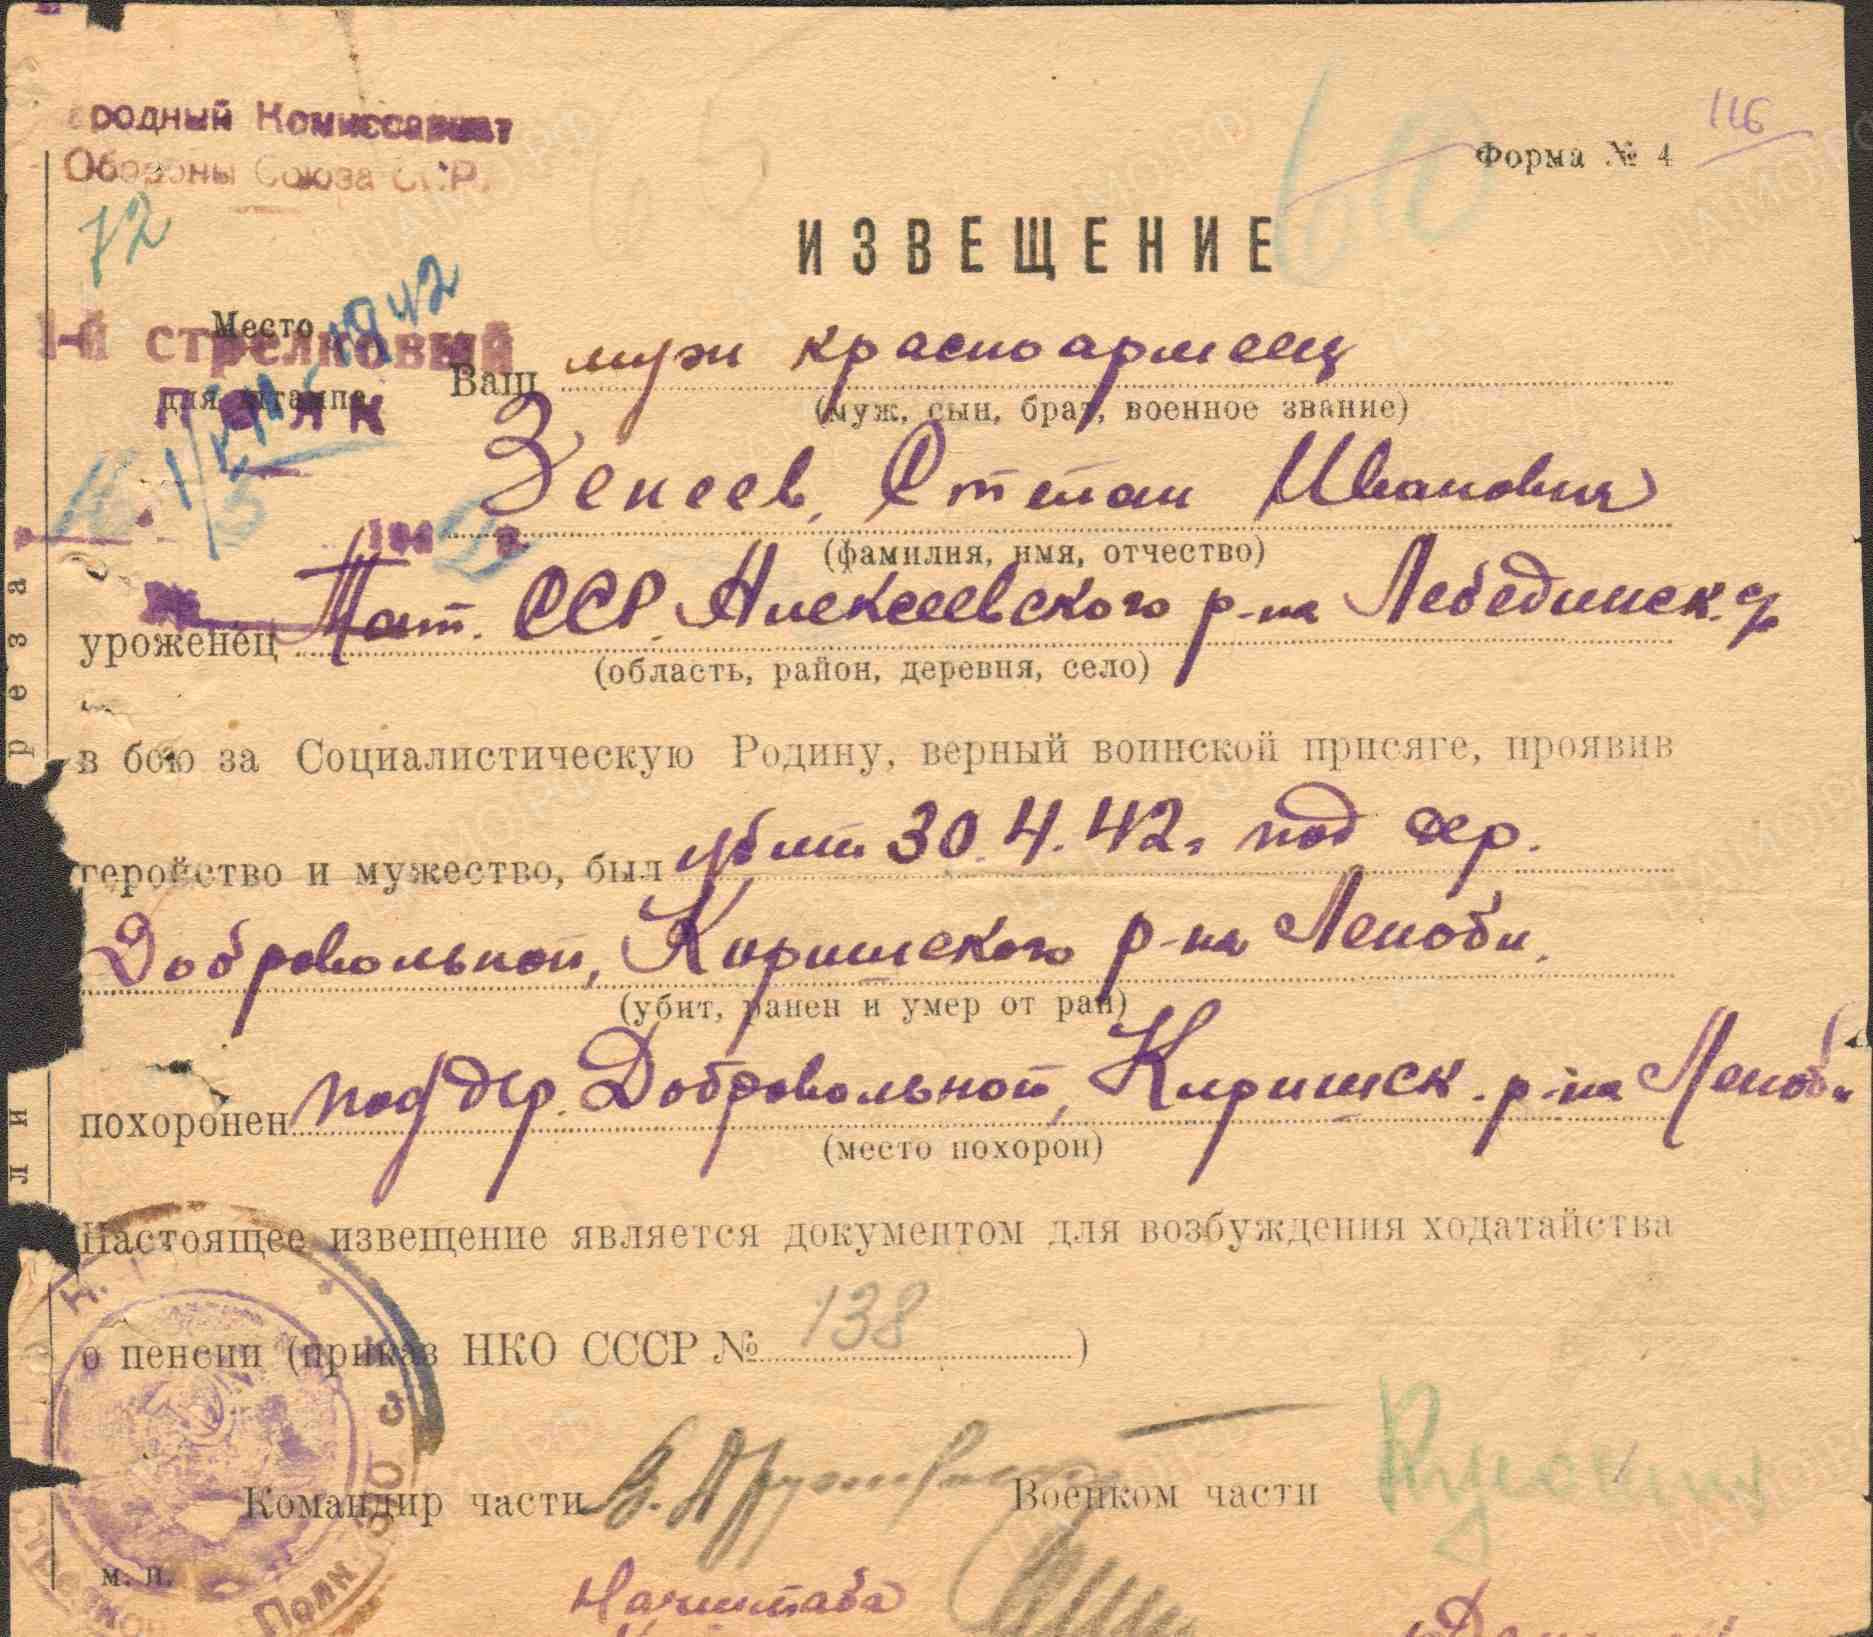 родный Комиссариат
Обороны Союза ССР
116
Форма № 4
72
ИЗВЕЩЕНИЕ
1-й стрелковый
полк
Место
для штампа
1942
Ваш муж красноармеец
(муж, сын, брат, военное звание)
Зенеев, Степан Иванович
(фамилия, имя, отчество)
уроженец Тат. ССР. Алексеевского р-на Лебединск.
(область, район, деревня, село)
в бою за Социалистическую Родину, верный воинской присяге, проявив
геройство и мужество, был убит 30.4.42г под дер.
Добровольной, Киришского р-на Леноби.
(убит, ранен и умер от ран)
похоронен под дер. Добровольной, Киришск. р-на Леноби
(место похорон)
Настоящее извещение является документом для возбуждения ходатайства
о пенсии (приказ НКО СССР № 138 )
Командир части
Военком части
м. п.
Начштаба
реза
ли